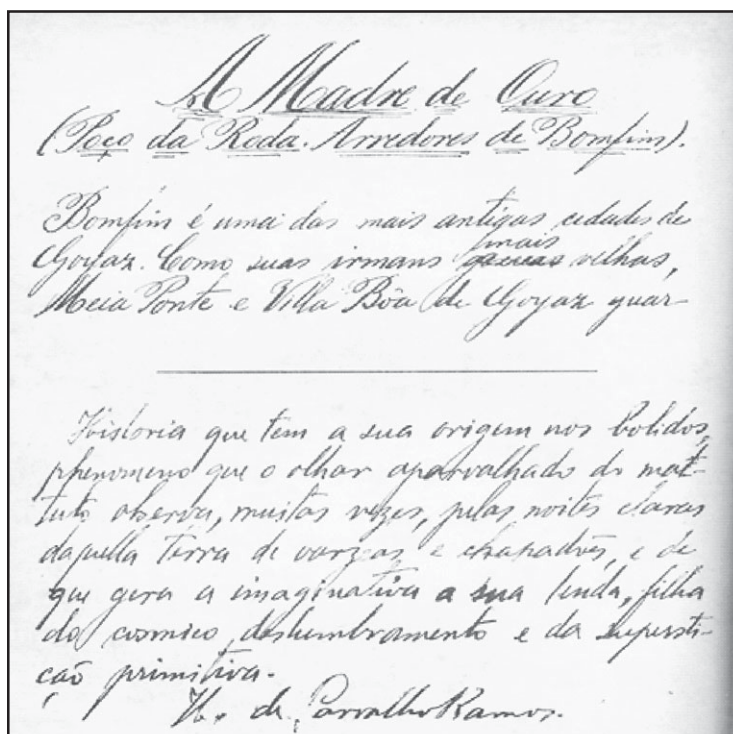 A Madre de Ouro
(Poço da Roda. Arredores de Bomfim).
Bomfim é uma das mais antigas cidades de
Goyaz. Como suas irmans mais velhas,
Meia Ponte e Villa Bôa de Goyaz guar-
Historia que tem a sua origem nos bolidos,
phenomeno que o olhar aparvalhado do mat-
tuto observa, muitas vezes, pelas noites claras
daquella terra de varzeas e chapadões, e de
que gera a imaginativa a sua lenda, filha
do cosmico deslumbramento e da supersti-
ção primitiva.
H. de Carvalho Ramos.